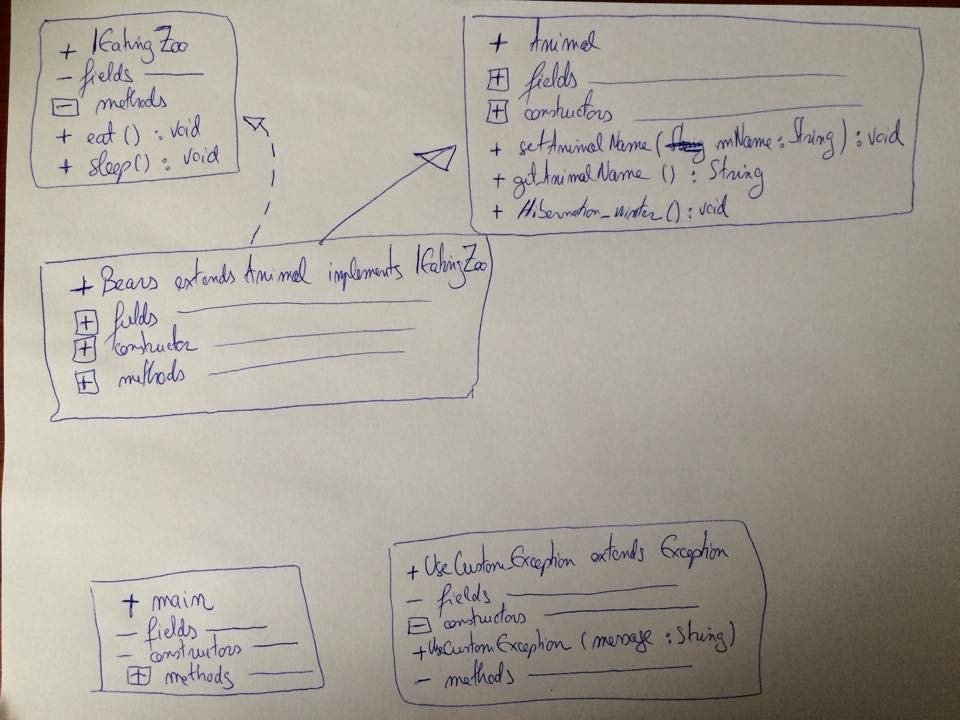 + IEatingZoo
- fields
- methods
+ eat () : void
+ sleep() : void
+ Animal
+ fields
+ constructors
+ setAnimalName ( mName : String) : void
+ getAnimalName () : String
+ Hibernation_winter () : void
+ Bears extends Animal implements IEatingZoo
+ fields
+ constructor
+ methods
+ main
- fields
- constructors
+ methods
+ UseCustomException extends Exception
- fields
- constructors
+ UseCustomException (message : String)
- methods